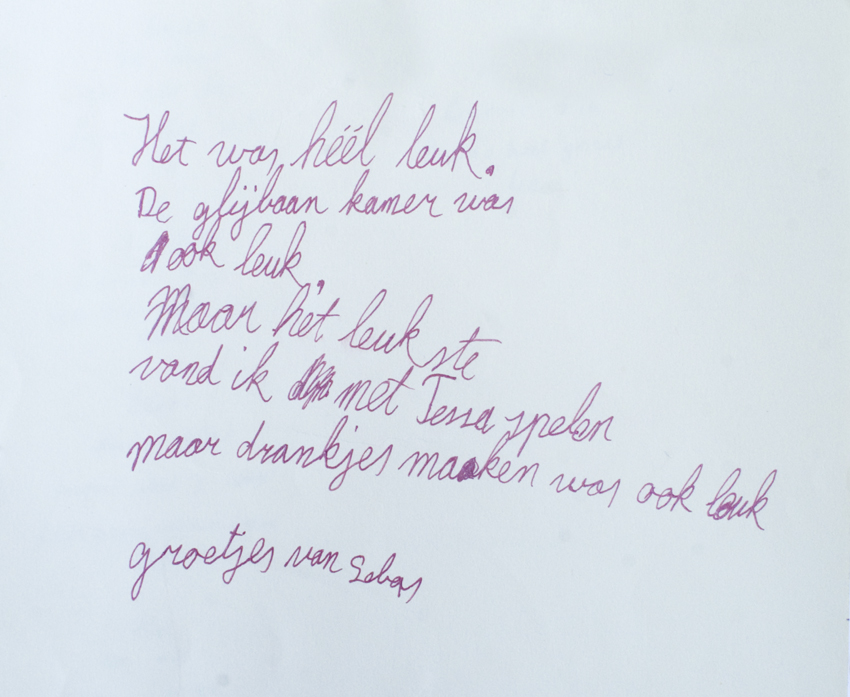 Het was héél leuk.
De glijbaan kamer was
ook leuk.
Maar het leukste
vand ik met Tessa spelen
maar drankjes maaken was ook leuk
groetjes van Sebas